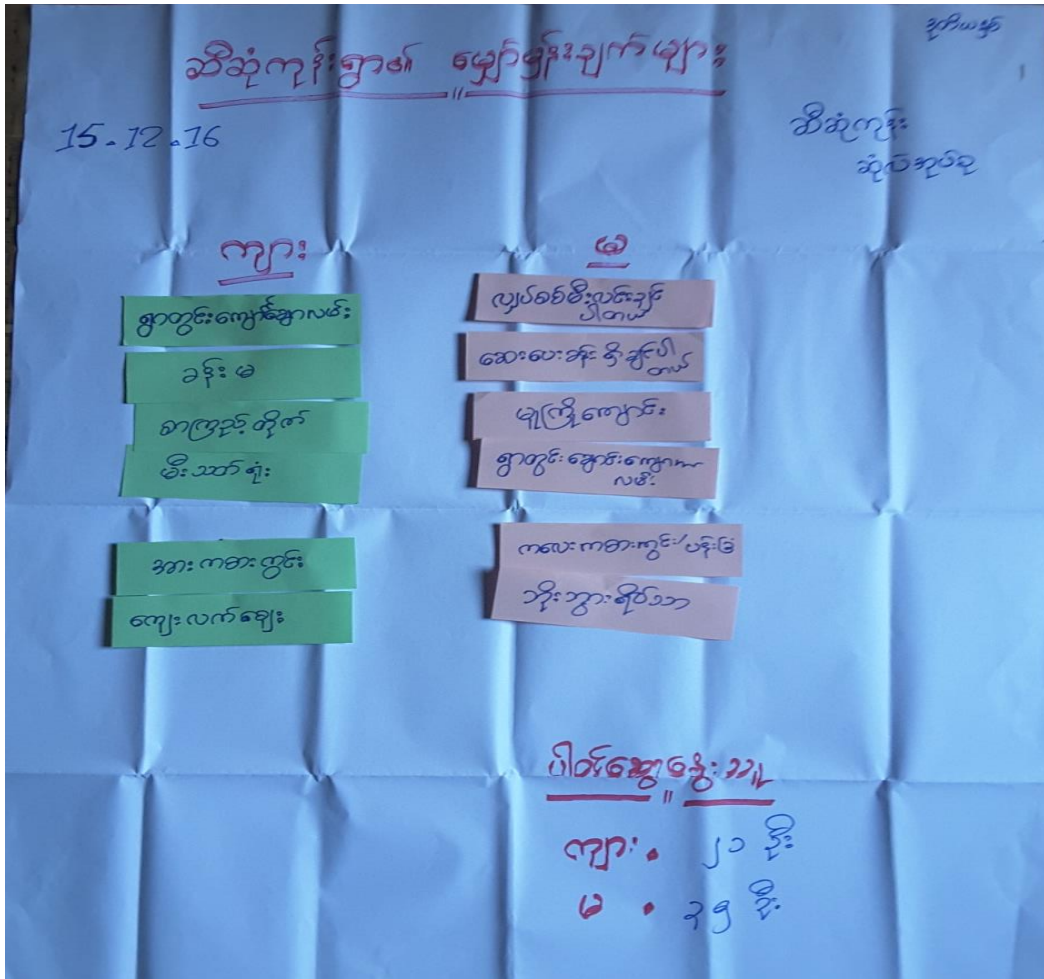 ဒုတိယနှစ်
ဆီဆုံကုန်းရွာ၏ မျှော်မှန်းချက်များ
15.12.16
ဆီဆုံကုန်း
ဆုံလ်အုပ်စု
ကျား
မ
ရွာတွင်းကျောက်ချောလမ်း
ခန်းမ
စာကြည့်တိုက်
မီးသတ်ရုံး
အားကစားကွင်း
ကျေးလက်ဈေး
လျှပ်စစ်မီးလင်းချင်
ပါတယ်
ဆေးပေးခန်းရှိချင်ပါ
တယ်
မူကြိုကျောင်း
ရွာတွင်းချောင်းကျောက်
လမ်း
ကလေးကစားကွင်း/ပန်းခြံ
ဘိုးဘွားရိပ်သာ
ပါဝင်ဆွေးနွေးသူ
ကျား • ၂၁ ဦး
မ • ၃၅ ဦး